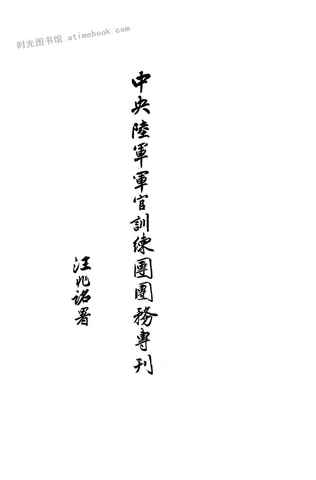 时光图书馆 atimebook.com
中央陸軍軍官訓練團團務專刊
汪兆銘署